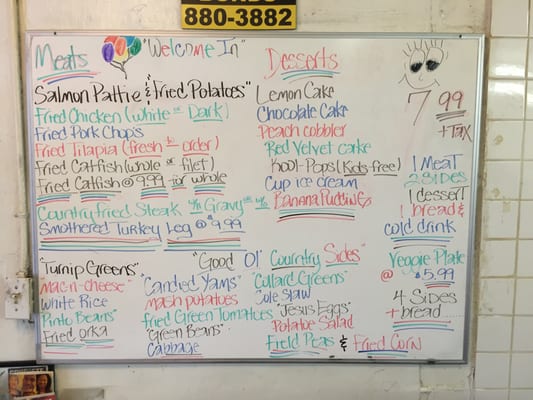 880-3882
Meats
"Welcome In"
Salmon Pattie & Fried Potatoes"
Fried Chicken (White or Dark)
Fried Pork Chop's
Fried Tilapia (fresh to order)
Fried Catfish (whole or filet)
Fried Catfish @ 9.99 for whole
Country Fried Steak w/ Gravy or w/o
Smothered Turkey Leg @ $9.99
Desserts
Lemon Cake
Chocolate Cake
Peach cobbler
Red Velvet cake
Kool-Pops (Kids-free)
Cup ice cream
Banana Pudding
7 99
+ Tax
1 Meat
2 Sides
1 dessert
1 bread &
cold drink
Veggie Plate
@ $5.99
4 Sides
+ bread
"Good Ol' Country Sides"
"Turnip Greens"
Mac-n-cheese"
White Rice
Pinto Beans"
Fried Okra
"Candied Yams"
Mash potatoes
Fried Green Tomatoes
"Green Beans"
Cabbage
"Collard Greens"
Cole Slaw
"Jesus Eggs"
Potatoe Salad
Field Peas & Fried Corn